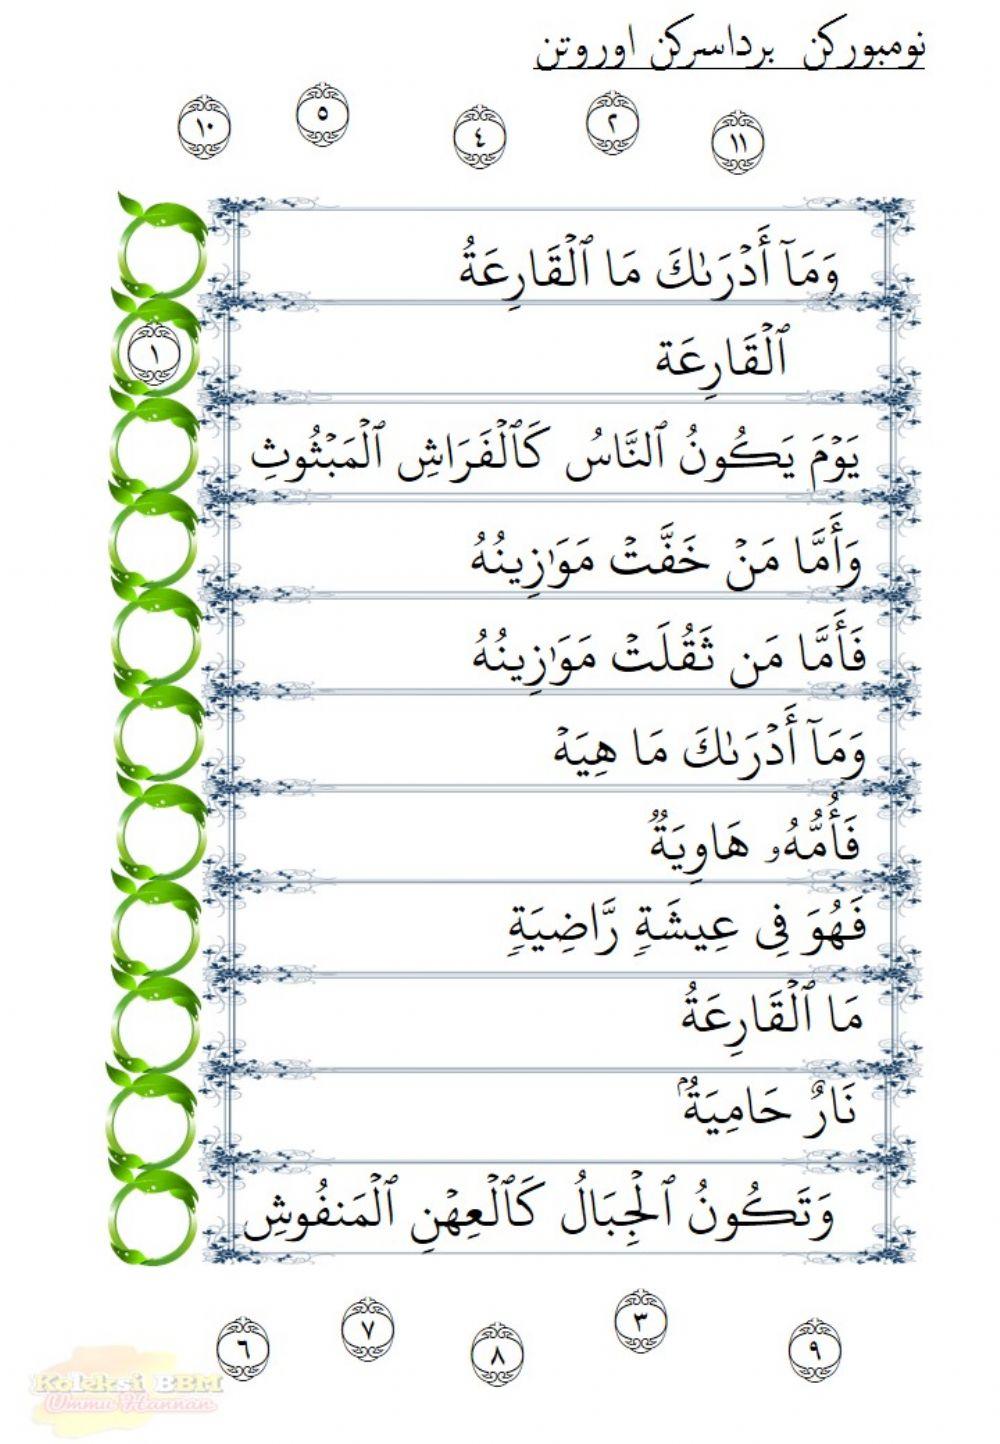 نومبوركن برداسركن اوروتن
١١ ٢ ٤ ٥ ١٠
وَمَآ أَدۡرَىٰكَ مَا ٱلۡقَارِعَةُ
ٱلۡقَارِعَة ١
يَوۡمَ يَكُونُ ٱلنَّاسُ كَٱلۡفَرَاشِ ٱلۡمَبۡثُوثِ
وَأَمَّا مَنۡ خَفَّتۡ مَوَٰزِينُهُ
فَأَمَّا مَن ثَقُلَتۡ مَوَٰزِينُهُ
وَمَآ أَدۡرَىٰكَ مَا هِيَهۡ
فَأُمُّهُۥ هَاوِيَةٞ
فَهُوَ فِي عِيشَةٖ رَّاضِيَةٖ
مَا ٱلۡقَارِعَةُ
نَارٌ حَامِيَةُۢ
وَتَكُونُ ٱلۡجِبَالُ كَٱلۡعِهۡنِ ٱلۡمَنفُوشِ
٩ ٣ ٨ ٧ ٦
Koleksi BBM
Ummu Hannan